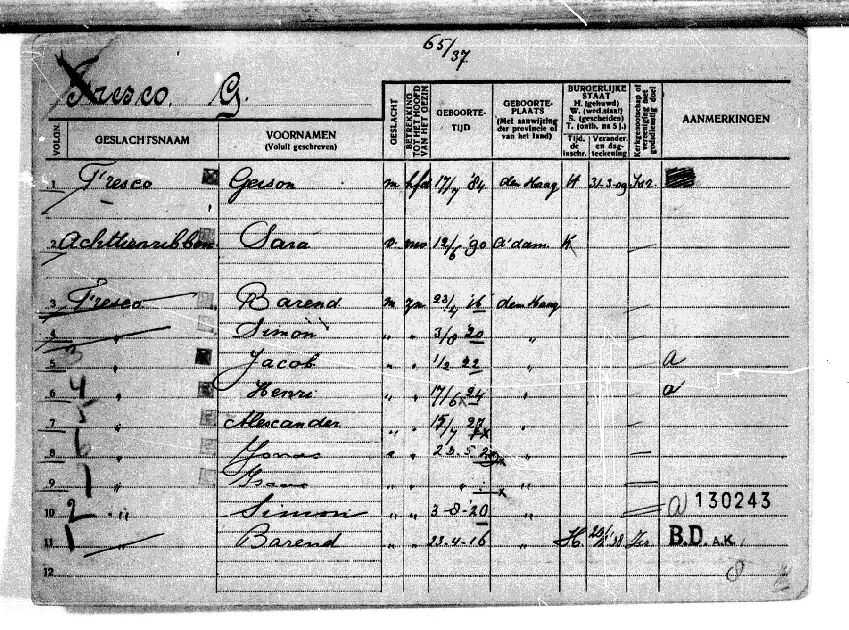 65/37
Fresco. G.
VOLGN. GESLACHTSNAAM VOORNAMEN (Voluit geschreven) GESLACHT BETREKKING TOT HET HOOFD VAN HET GEZIN GEBOORTE-TIJD GEBOORTE-PLAATS (Met aanwijzing der provincie of van het land) BURGERLIJKE STAAT H. (gehuwd) W. (wed.staat) S. (gescheiden) T. (onth. na 5 j.) Tijd. de inschr. Verander. en dag-teekening Kerkgenootschap of vereeniging met godsdienstig doel AANMERKINGEN
1 Fresco Gerson m hfd 17/7 '84 den Haag H 31-3-09 Isr.
2 Achttienribben Sara v. 12/6 '90 A'dam.
3 Fresco Barend m zn 23/4 '16 den Haag
4 " Simon " " 3/8 20 "
3 5 " Jacob " " 1/2 22 " a
4 6 " Henri " " 17/5 24 " a
5 7 " Alexander " " 15/7 27 "
6 8 " Jonas " " 23.5.2 "
7 9 " " "
2 10 " Simon " " 3-8-'20 " a 130243
1 11 " Barend " " 23-4-16 " H. 38 Isr B.D. A.K.
12 8